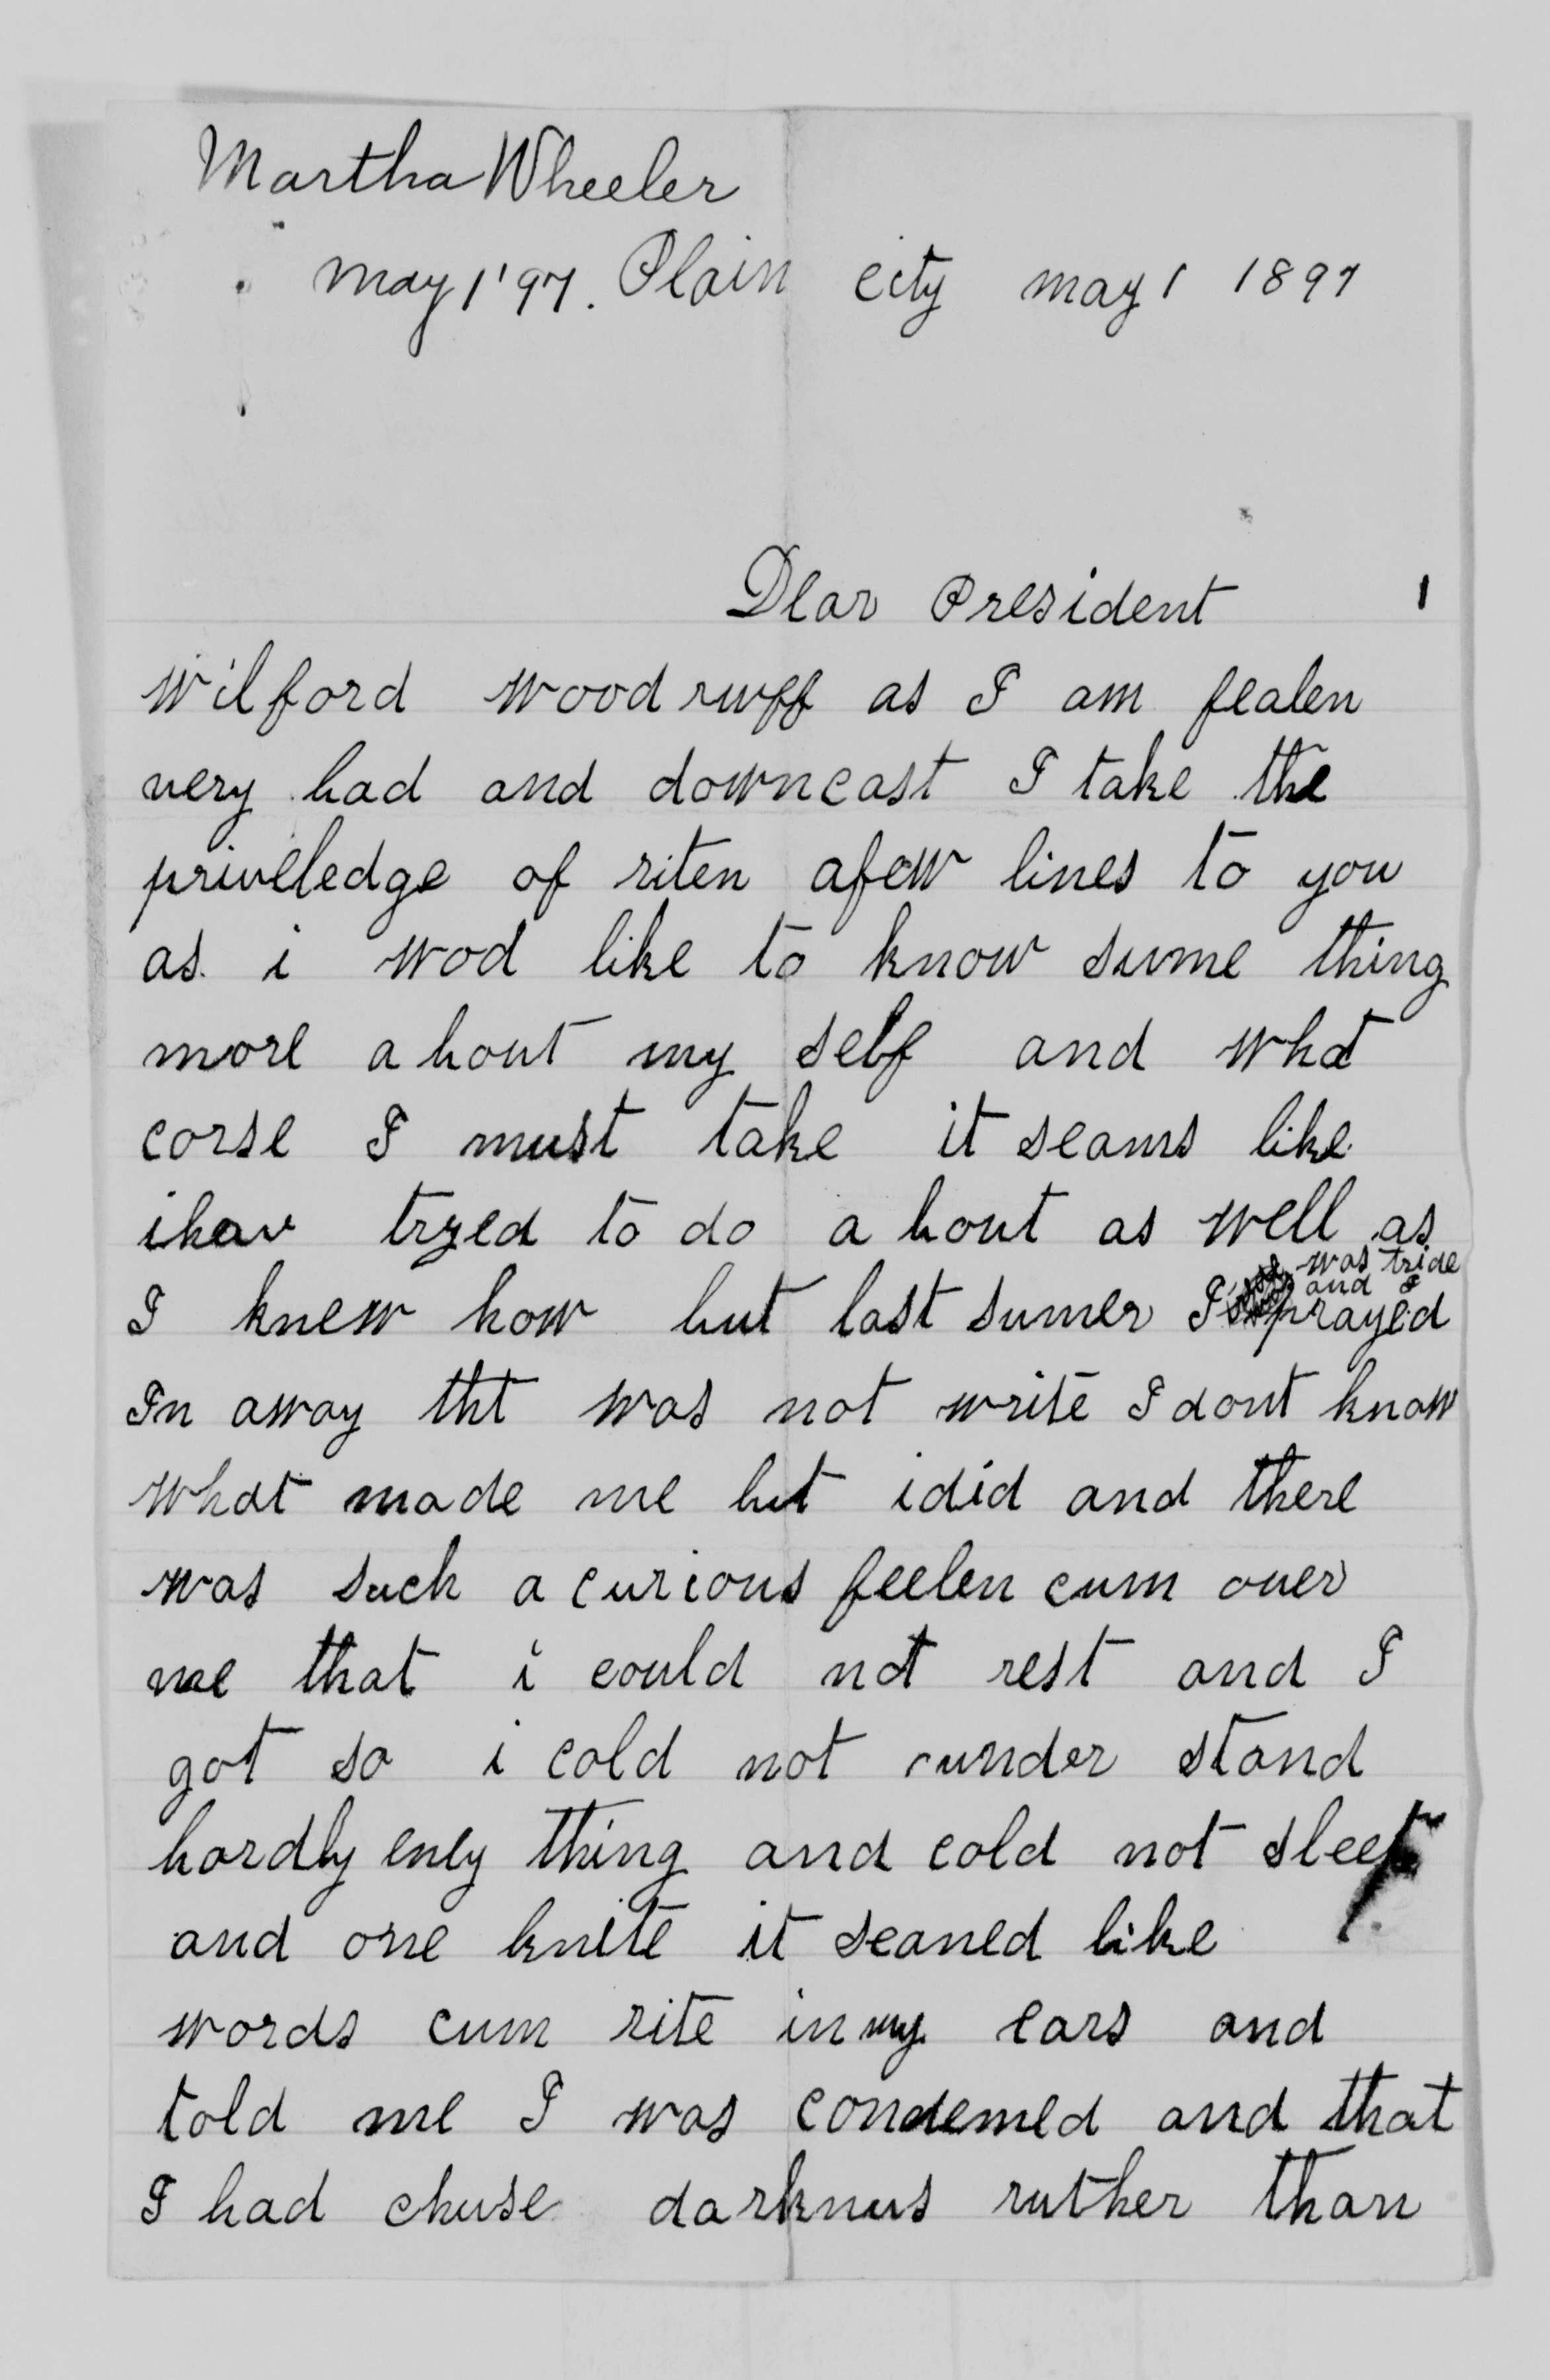 Martha Wheeler
May 1 '97. Plain city may 1 1897
Dear President 1
Wilford Woodruff as I am fealen
very bad and downcast I take the
priveledge of riten afew lines to you
as i wod like to know sume thing
more a bout my self and what
corse I must take it seams like
ihav tryed to do a bout as well as
was tride
and I
I knew how but last sumer I prayed
In away tht was not write I dont know
what made me but idid and there
was such a curious feelen cum over
me that i could not rest and I
got so i cold not under stand
hardly eney thing and cold not sleep
and one knite it seaned like
words cum rite in my ears and
told me I was condemed and that
I had chuse darknus ruther than